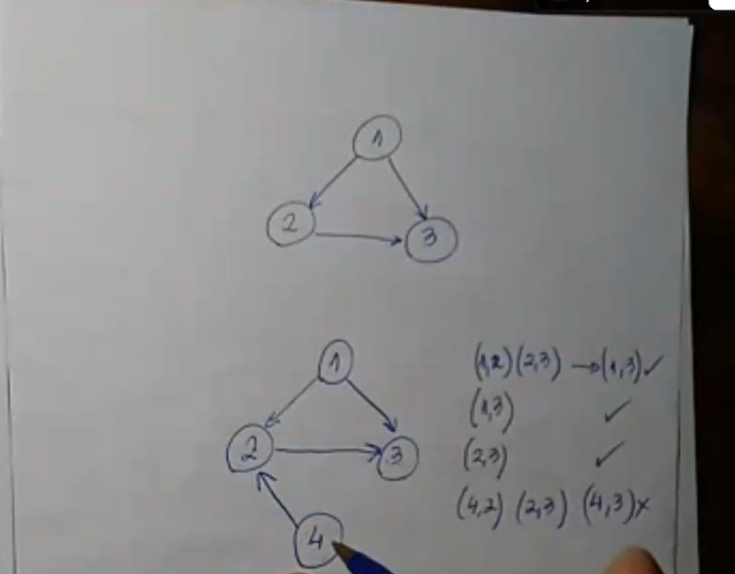 1
2
3
1
2
3
4
(1,2)(2,3) →(1,3)✓
(1,3) ✓
(2,3) ✓
(4,2) (2,3) (4,3)×